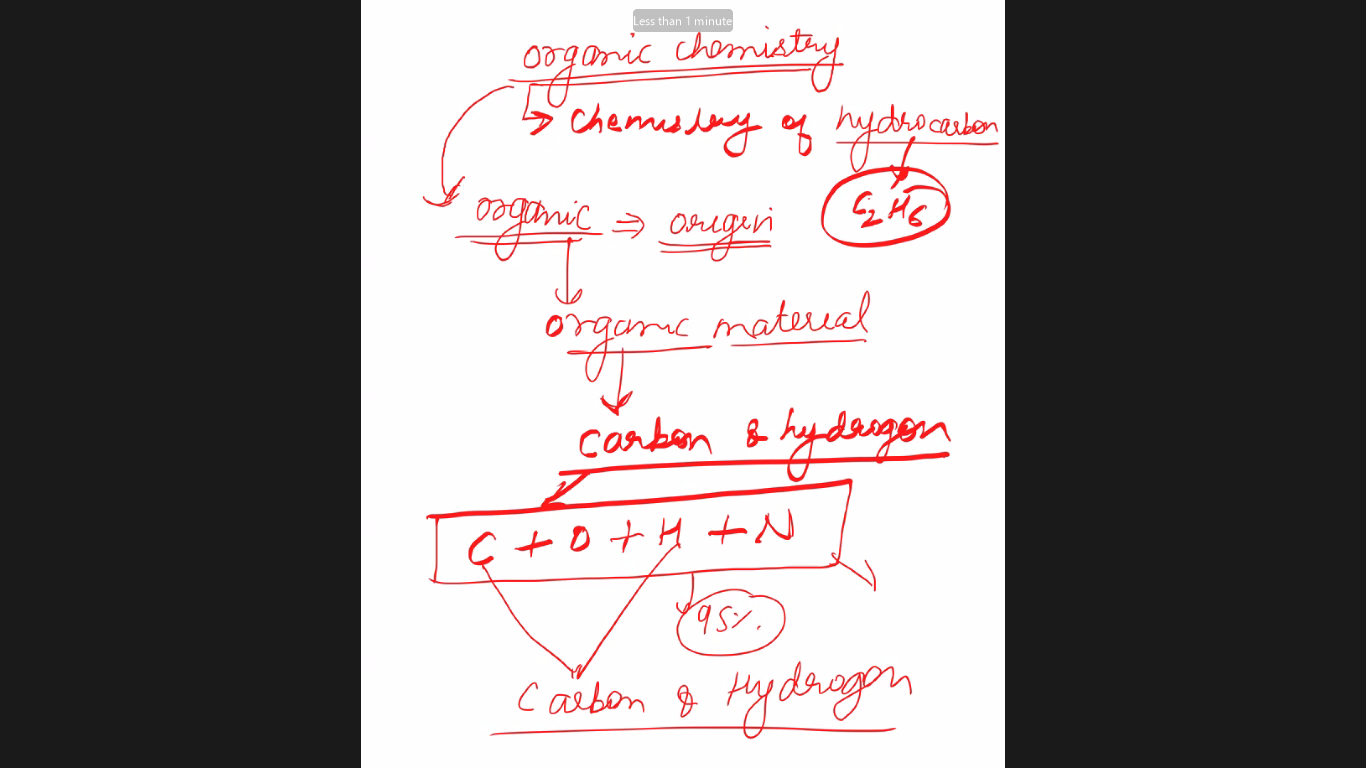 Less than 1 minute
organic chemistry
→ chemistry of hydrocarbon
C2H6
organic ⇒ origen
organic material
carbon & hydrogen
C + O + H + N
95%.
Carbon & Hydrogen